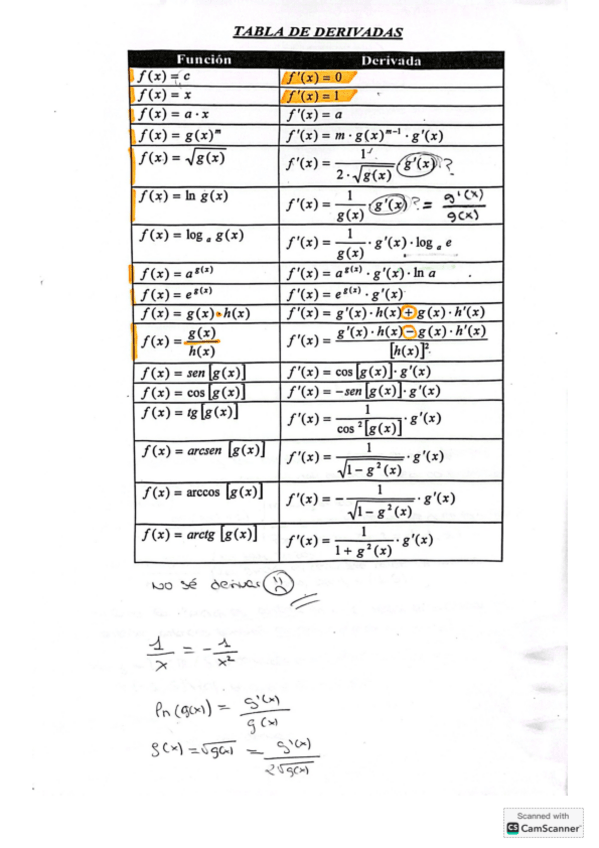 TABLA DE DERIVADAS
Función Derivada
f(x) = c f'(x) = 0
f(x) = x f'(x) = 1
f(x) = a · x f'(x) = a
f(x) = g(x)^m f'(x) = m · g(x)^(m-1) · g'(x)
f(x) = √g(x) f'(x) = 1/(2 · √g(x)) · g'(x) ?
f(x) = ln g(x) f'(x) = 1/g(x) · g'(x) ? = g'(x)/g(x)
f(x) = log_a g(x) f'(x) = 1/g(x) · g'(x) · log_a e
f(x) = a^g(x) f'(x) = a^g(x) · g'(x) · ln a
f(x) = e^g(x) f'(x) = e^g(x) · g'(x)
f(x) = g(x) · h(x) f'(x) = g'(x) · h(x) + g(x) · h'(x)
f(x) = g(x)/h(x) f'(x) = (g'(x) · h(x) − g(x) · h'(x))/[h(x)]²
f(x) = sen [g(x)] f'(x) = cos [g(x)] · g'(x)
f(x) = cos [g(x)] f'(x) = −sen [g(x)] · g'(x)
f(x) = tg [g(x)] f'(x) = 1/cos²[g(x)] · g'(x)
f(x) = arcsen [g(x)] f'(x) = 1/√(1 − g²(x)) · g'(x)
f(x) = arccos [g(x)] f'(x) = − 1/√(1 − g²(x)) · g'(x)
f(x) = arctg [g(x)] f'(x) = 1/(1 + g²(x)) · g'(x)
No sé derivar
1/x = - 1/x²
ln(g(x)) = g'(x)/g(x)
g(x) = √g(x) = g'(x)/(2√g(x))
Scanned with
CS CamScanner